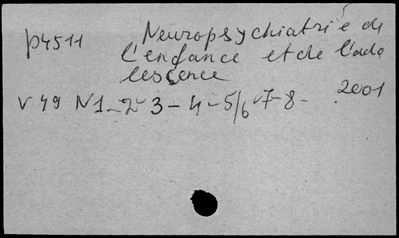 p4511 Neuropsychiatrie de
l'enfance et de l'ado
lescence
v 49 N1-2-3-4-5/6-7-8- 2001